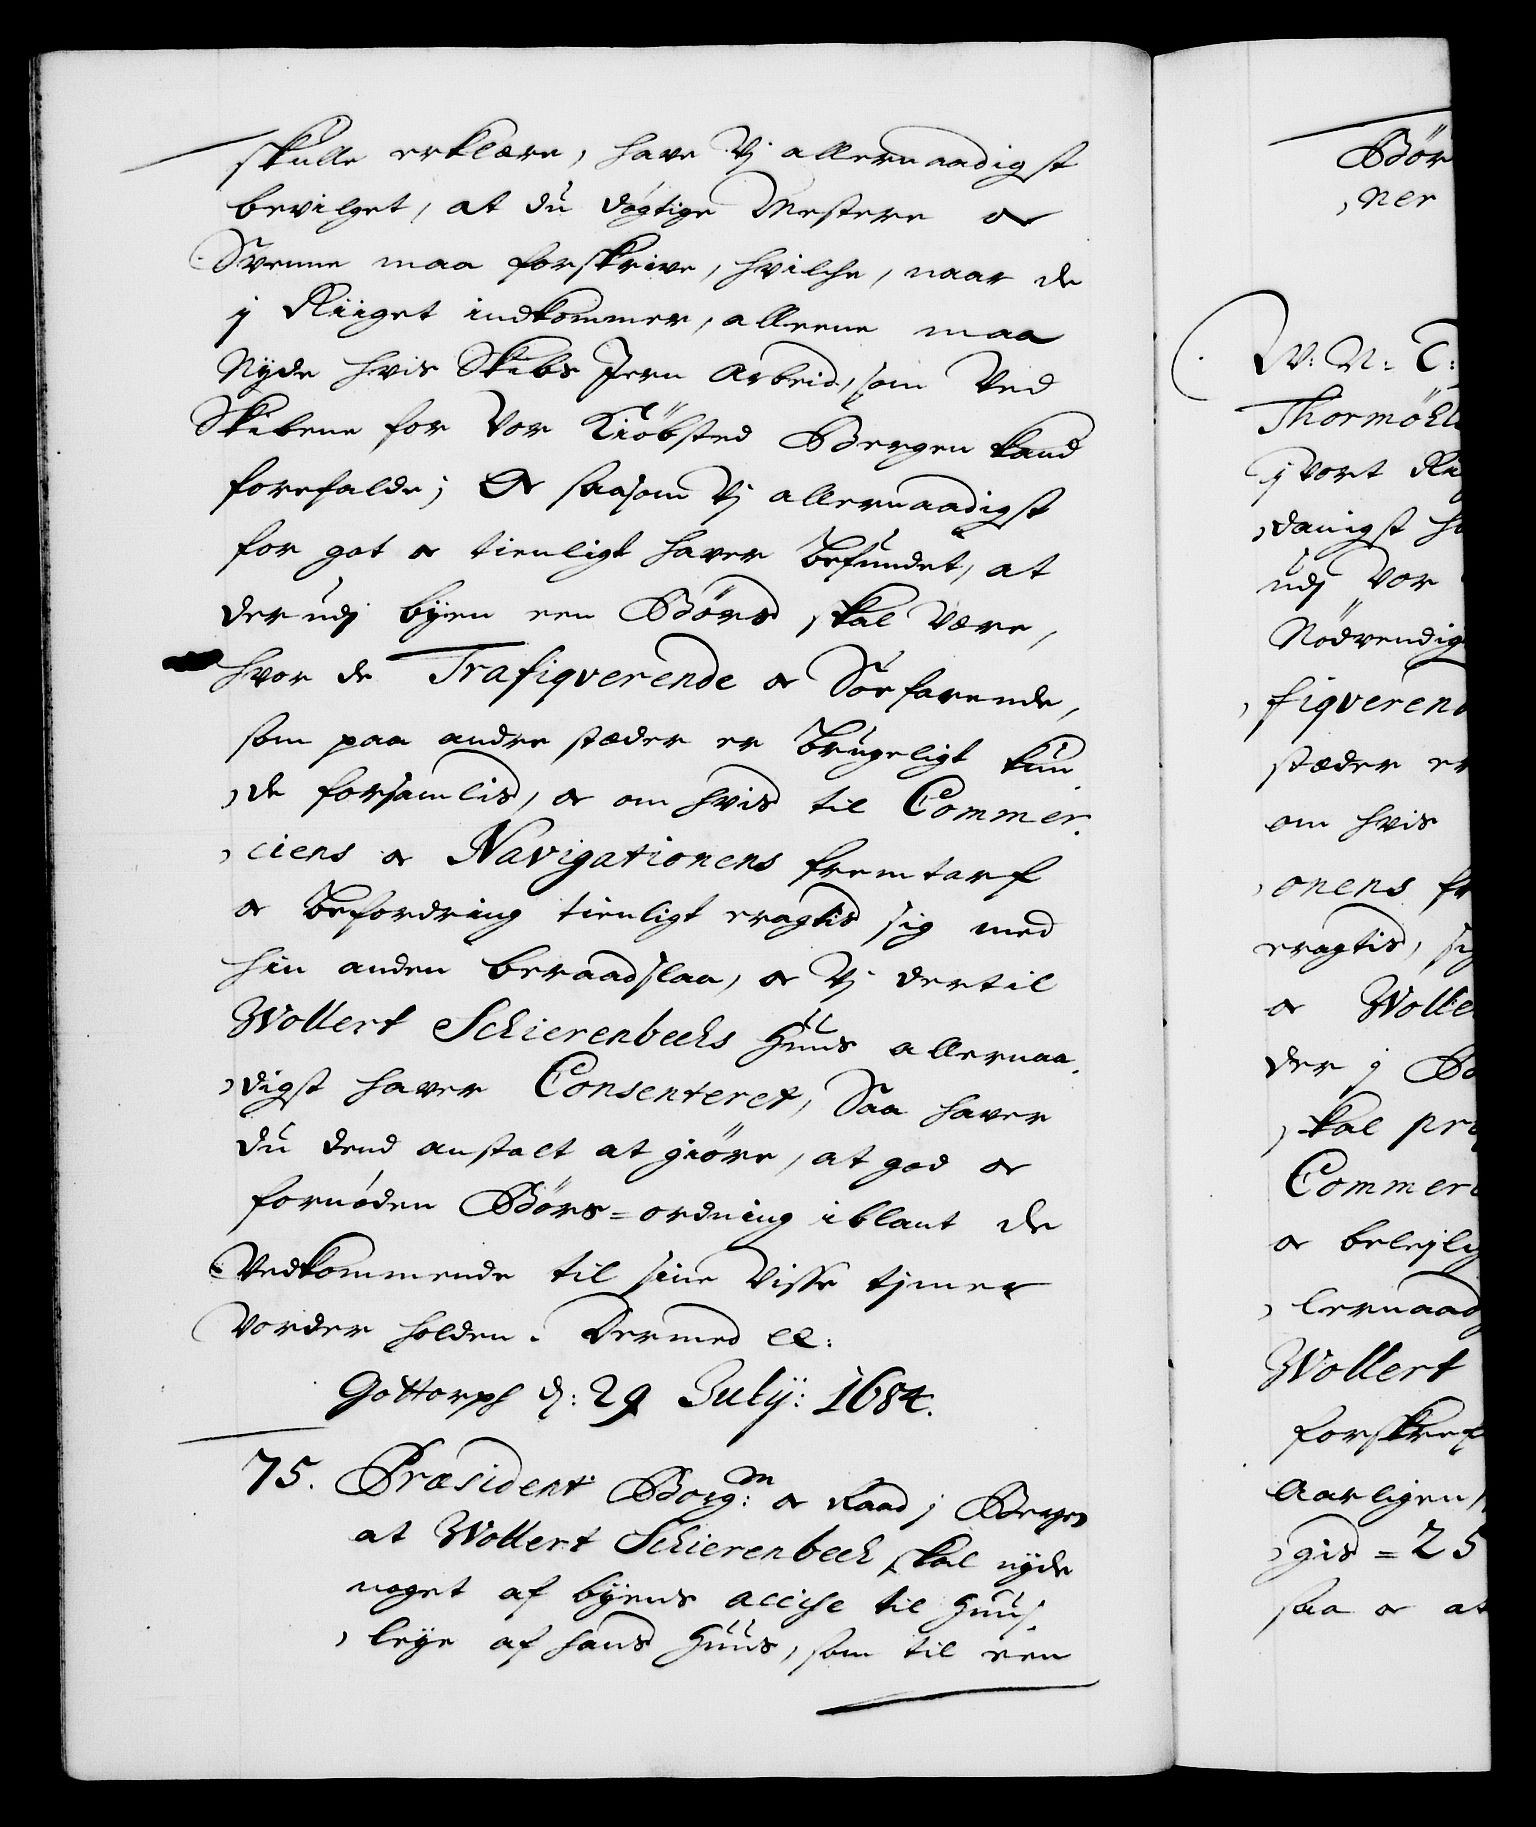 skulle erklære, have Vj allernaadigst
bevilget, at du døgtige Mestere og
Svenne maa forskrive, hvilche, naar de
j Riiget indkommer, alleene maa
Nyde hvis Skibs Jern Arbeid, som Ved
Skibene for Vor Kiöbsted Bergen kand
forefalde; Og saasom Vj allernaadigst
for got og tienligt haver befundet, at
der udj byen een Börs skal være,
hvor de Trafiqverende og Søefarende,
som paa andre stæder er brugeligt kun
,de forsamlis, og om hvis til Commer,
,ciens og Navigationens fremtarf
og befordring tienligt eragtis sig med
hin anden beraadslaa, og Vj dertil
Wollert Schierenbechs Huus allernaa,
,digst haver Consenteret, Saa haver
du dend anstalt at giöre, at god og
fornøden Börs=ordning iblant de
Vedkommende til sine Visse tjmer
Vorder holden. Dermed etc:
Gottorph d: 29 Julij: 1684.
75. Præsident Borg:m og Raad j Bergen
at Wollert Schierenbech skal nyde
noget af byens accise til Huus,
,leye af hans Huus, som til een
Bör
,ner
W: N: T:
Thormöhl
j vort Ri
,danigst ha
udj Vor
Nödvendig
,fiqveren
stæder er
om hvis
,onens fr
eragtis, sig
og Wolle
der j Bö
,skal pr
Commer
og belejlig
,lernaad
Wollert
forskref
Aarligen,
,gis = 25
saa og at